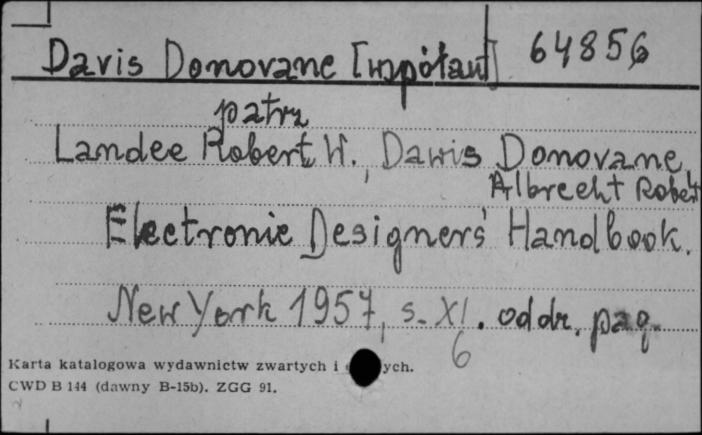 Davis Donovane [współaut] 64856
patrz
Landee Robert W., Dawis Donovane
Albrecht Robert
Electronic Designers' Handbook.
New York 1957, s. XI. oddz. pag.
6
Karta katalogowa wydawnictw zwartych i ych.
CWD B 144 (dawny B-15b). ZGG 91.